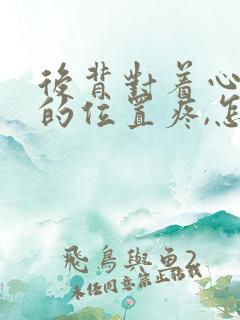 後背對着心
的位置疼,怎
飛鳥與魚2
未任同意禁止轉載